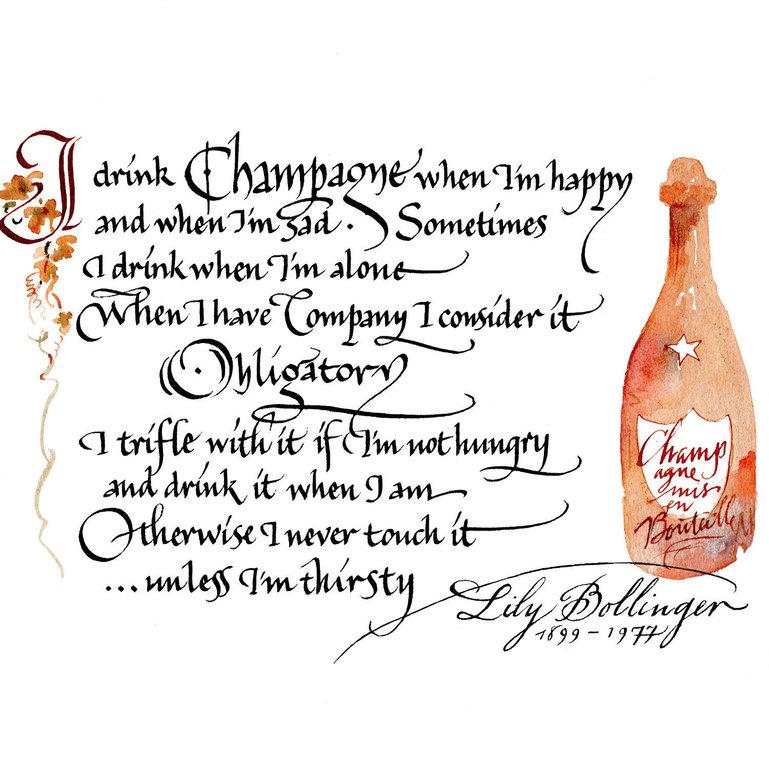 I drink Champagne when I'm happy
and when I'm sad. Sometimes
I drink when I'm alone
When I have Company I consider it
Obligatory
I trifle with it if I'm not hungry
and drink it when I am
Otherwise I never touch it
...unless I'm thirsty
Lily Bollinger
1899-1977
Champ
agne
mis
en
Bouteille